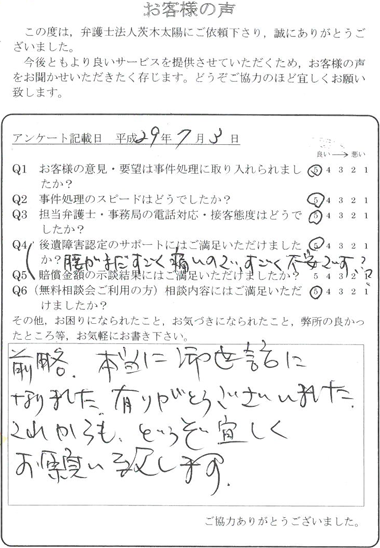 お客様の声
この度は、弁護士法人茨木太陽にご依頼下さり，誠にありがとうご
ざいました。
今後ともより良いサービスを提供させていただくため，お客様の声
をお聞かせいただきたく存じます。どうぞご協力のほど宜しくお願い
致します。
アンケート記載日 平成29年7月3日
良い→悪い
Q1 お客様の意見・要望は事件処理に取り入れられまし
たか？ 5 4 3 2 1
Q2 事件処理のスピードはどうでしたか？ 5 4 3 2 1
Q3 担当弁護士・事務局の電話対応・接客態度はどうで
したか？ 5 4 3 2 1
Q4 後遺障害認定のサポートにはご満足いただけました
か？ 5 4 3 2 1
(腰がまだすごく痛いので、すごく不安です?
Q5 賠償金額の示談結果にはご満足いただけましたか？ 5 4 3 2 1
Q6（無料相談会ご利用の方）相談内容にはご満足いただ
けましたか？ 5 4 3 2 1
その他，お困りになられたこと，お気づきになられたこと，弊所の良かっ
たところ等，お気軽にお書き下さい。
前略。本当に御世話に
なりました。有りがとうございました。
これからも、どうぞ宜しく
お願い致します。
ご協力ありがとうございました。